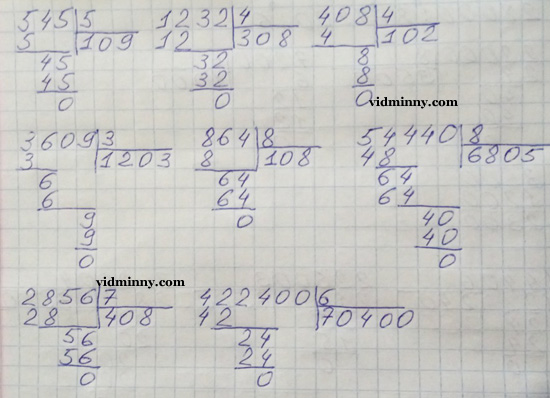 545|5
5 |109
45
45
0
1232|4
12 |308
32
32
0
408|4
4 |102
8
8
0
vidminny.com
3609|3
3 |1203
6
6
9
9
0
864|8
8 |108
64
64
0
54440|8
48 |6805
64
64
40
40
0
vidminny.com
2856|7
28 |408
56
56
0
422400|6
42 |70400
24
24
0